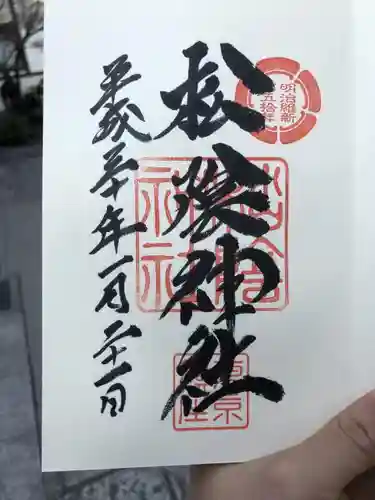 明治維新
百五拾年
松陰神社
平成三十年一月二十一日
松陰
神社
東京